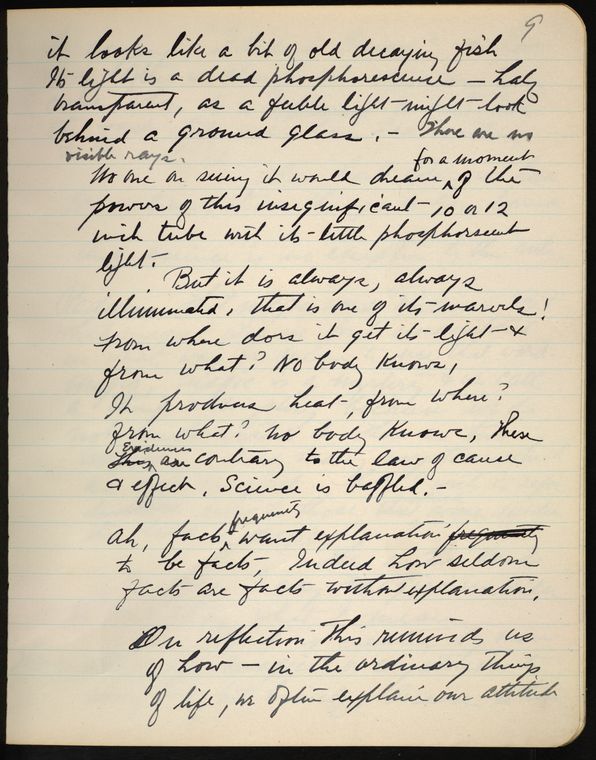 9
it looks like a bit of old decaying fish
Its light is a dead phosphorescence – half
transparent, as a feeble light might look
behind a ground glass. – There are no
visible rays.
No one on seeing it would dream for a moment of the
powers of this insignificant 10 or 12
inch tube with its little phosphorscent
light.
But it is always, always
illuminated, that is one of its marvels!
From where does it get its light &
from what? No body Knows,
It produces heat, from where?
from what? no body Knows, These
Evidences are contrary to the law of cause
& effect, Science is baffled. –
Ah, facts frequently want explanation frequently
to be facts, Indeed how seldom
facts are facts without explanation.
On reflection This reminds us
of how – in the ordinary things
of life, we often explain our attitude